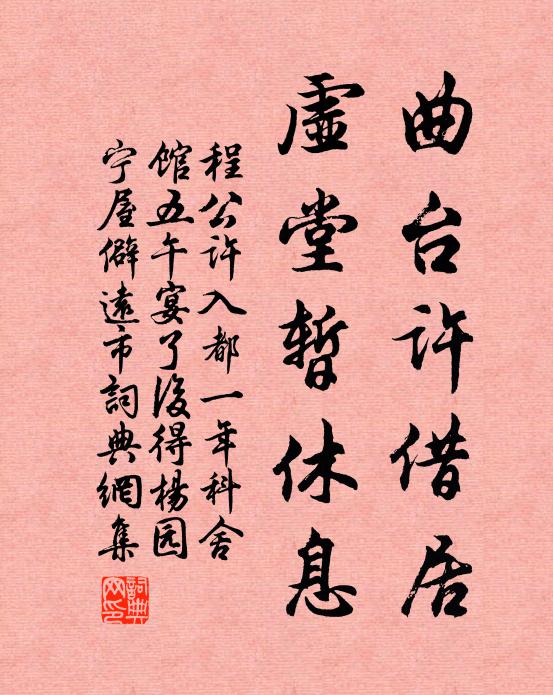 曲台许借居
虚堂暫休息
程公许入都一年科舍
馆五午宴了後得楊园
宁屋僻遠市詞典網集
詞典網印